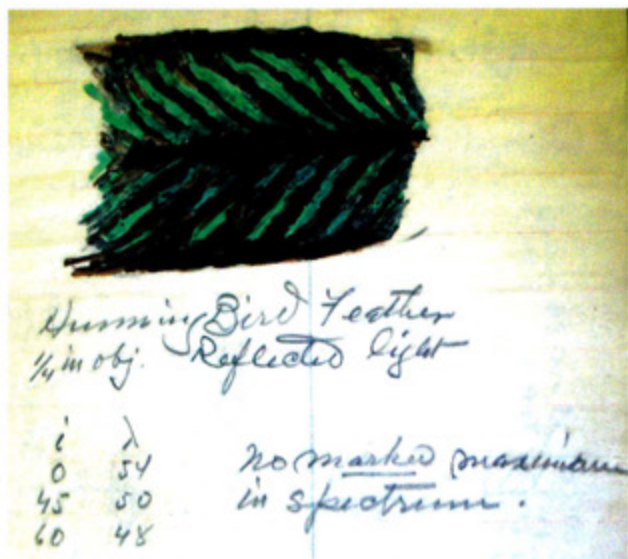 Humming Bird Feather
1/4 in obj. Reflected light
i λ
0 54
45 50
60 48
no marked maximum
in spectrum.